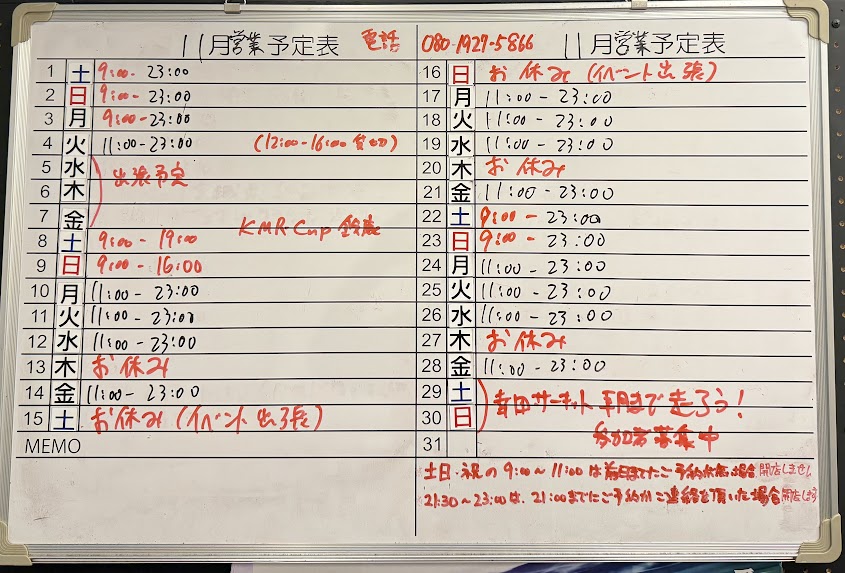 11月営業予定表 電話 080-1927-5866 11月営業予定表
1 土 9:00-23:00
2 日 9:00-23:00
3 月 9:00-23:00
4 火 11:00-23:00 (12:00-16:00貸切)
5 水 出張予定
6 木
7 金
KMR-Cup 鈴鹿
8 土 9:00-19:00
9 日 9:00-16:00
10 月 11:00-23:00
11 火 11:00-23:00
12 水 11:00-23:00
13 木 お休み
14 金 11:00-23:00
15 土 お休み (イベント出張)
MEMO
16 日 お休み (イベント出張)
17 月 11:00-23:00
18 火 11:00-23:00
19 水 11:00-23:00
20 木 お休み
21 金 11:00-23:00
22 土 9:00-23:00
23 日 9:00-23:00
24 月 11:00-23:00
25 火 11:00-23:00
26 水 11:00-23:00
27 木 お休み
28 金 11:00-23:00
29 土 幸田サーキット 朝まで走ろう!
30 日 参加者募集中
31
土日・祝の9:00～11:00は前日までにご予約が無い場合開店しません
21:30～23:00は、21:00までにご予約かご連絡を頂いた場合開店します